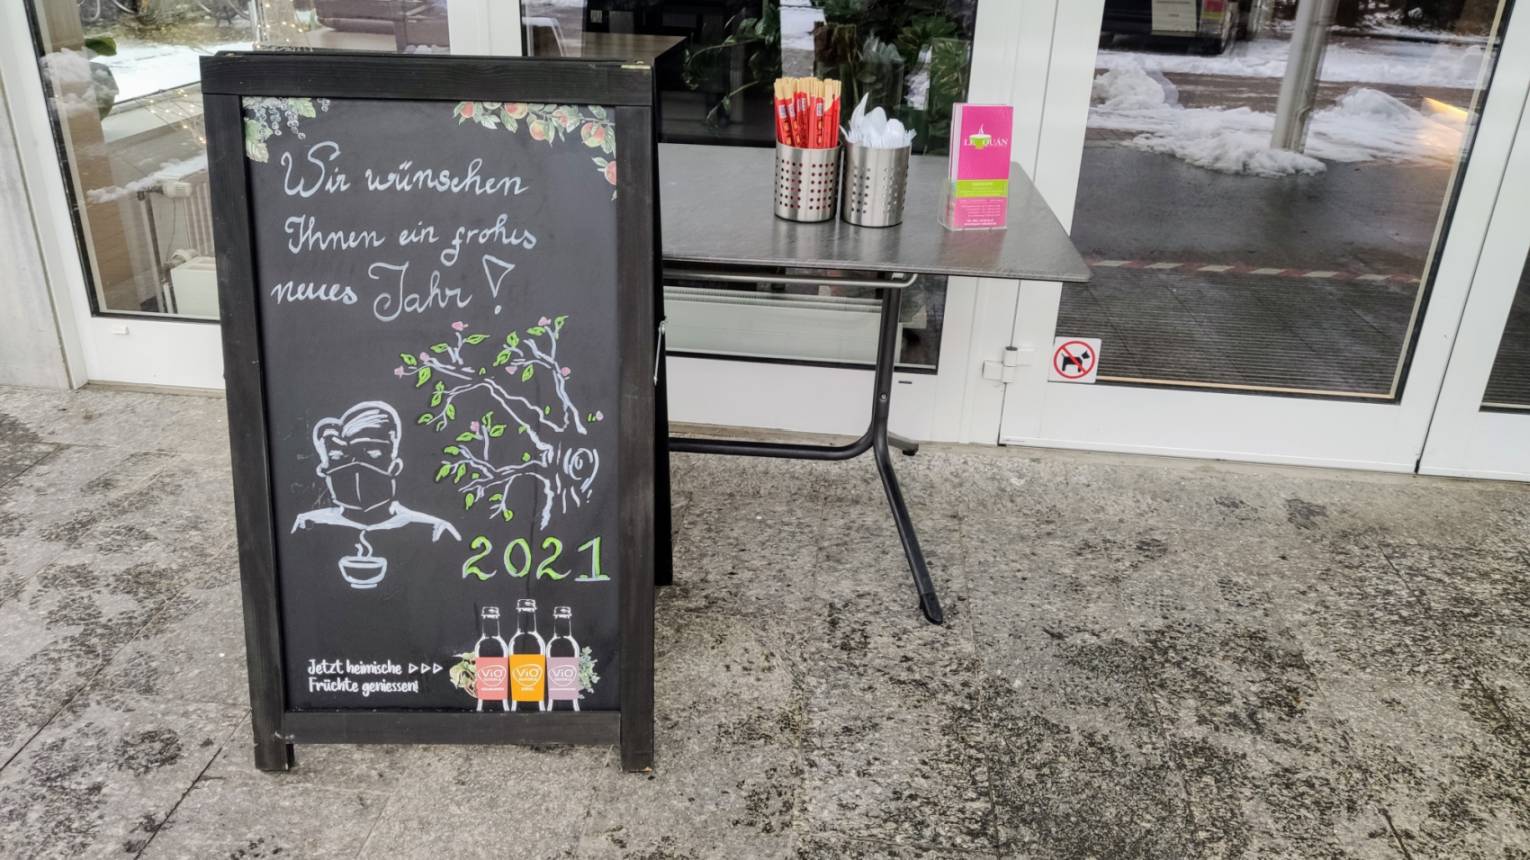 Wir wünschen
Ihnen ein frohes
neues Jahr!
2021
Jetzt heimische
Früchte geniessen!
ViO
ViO
ViO